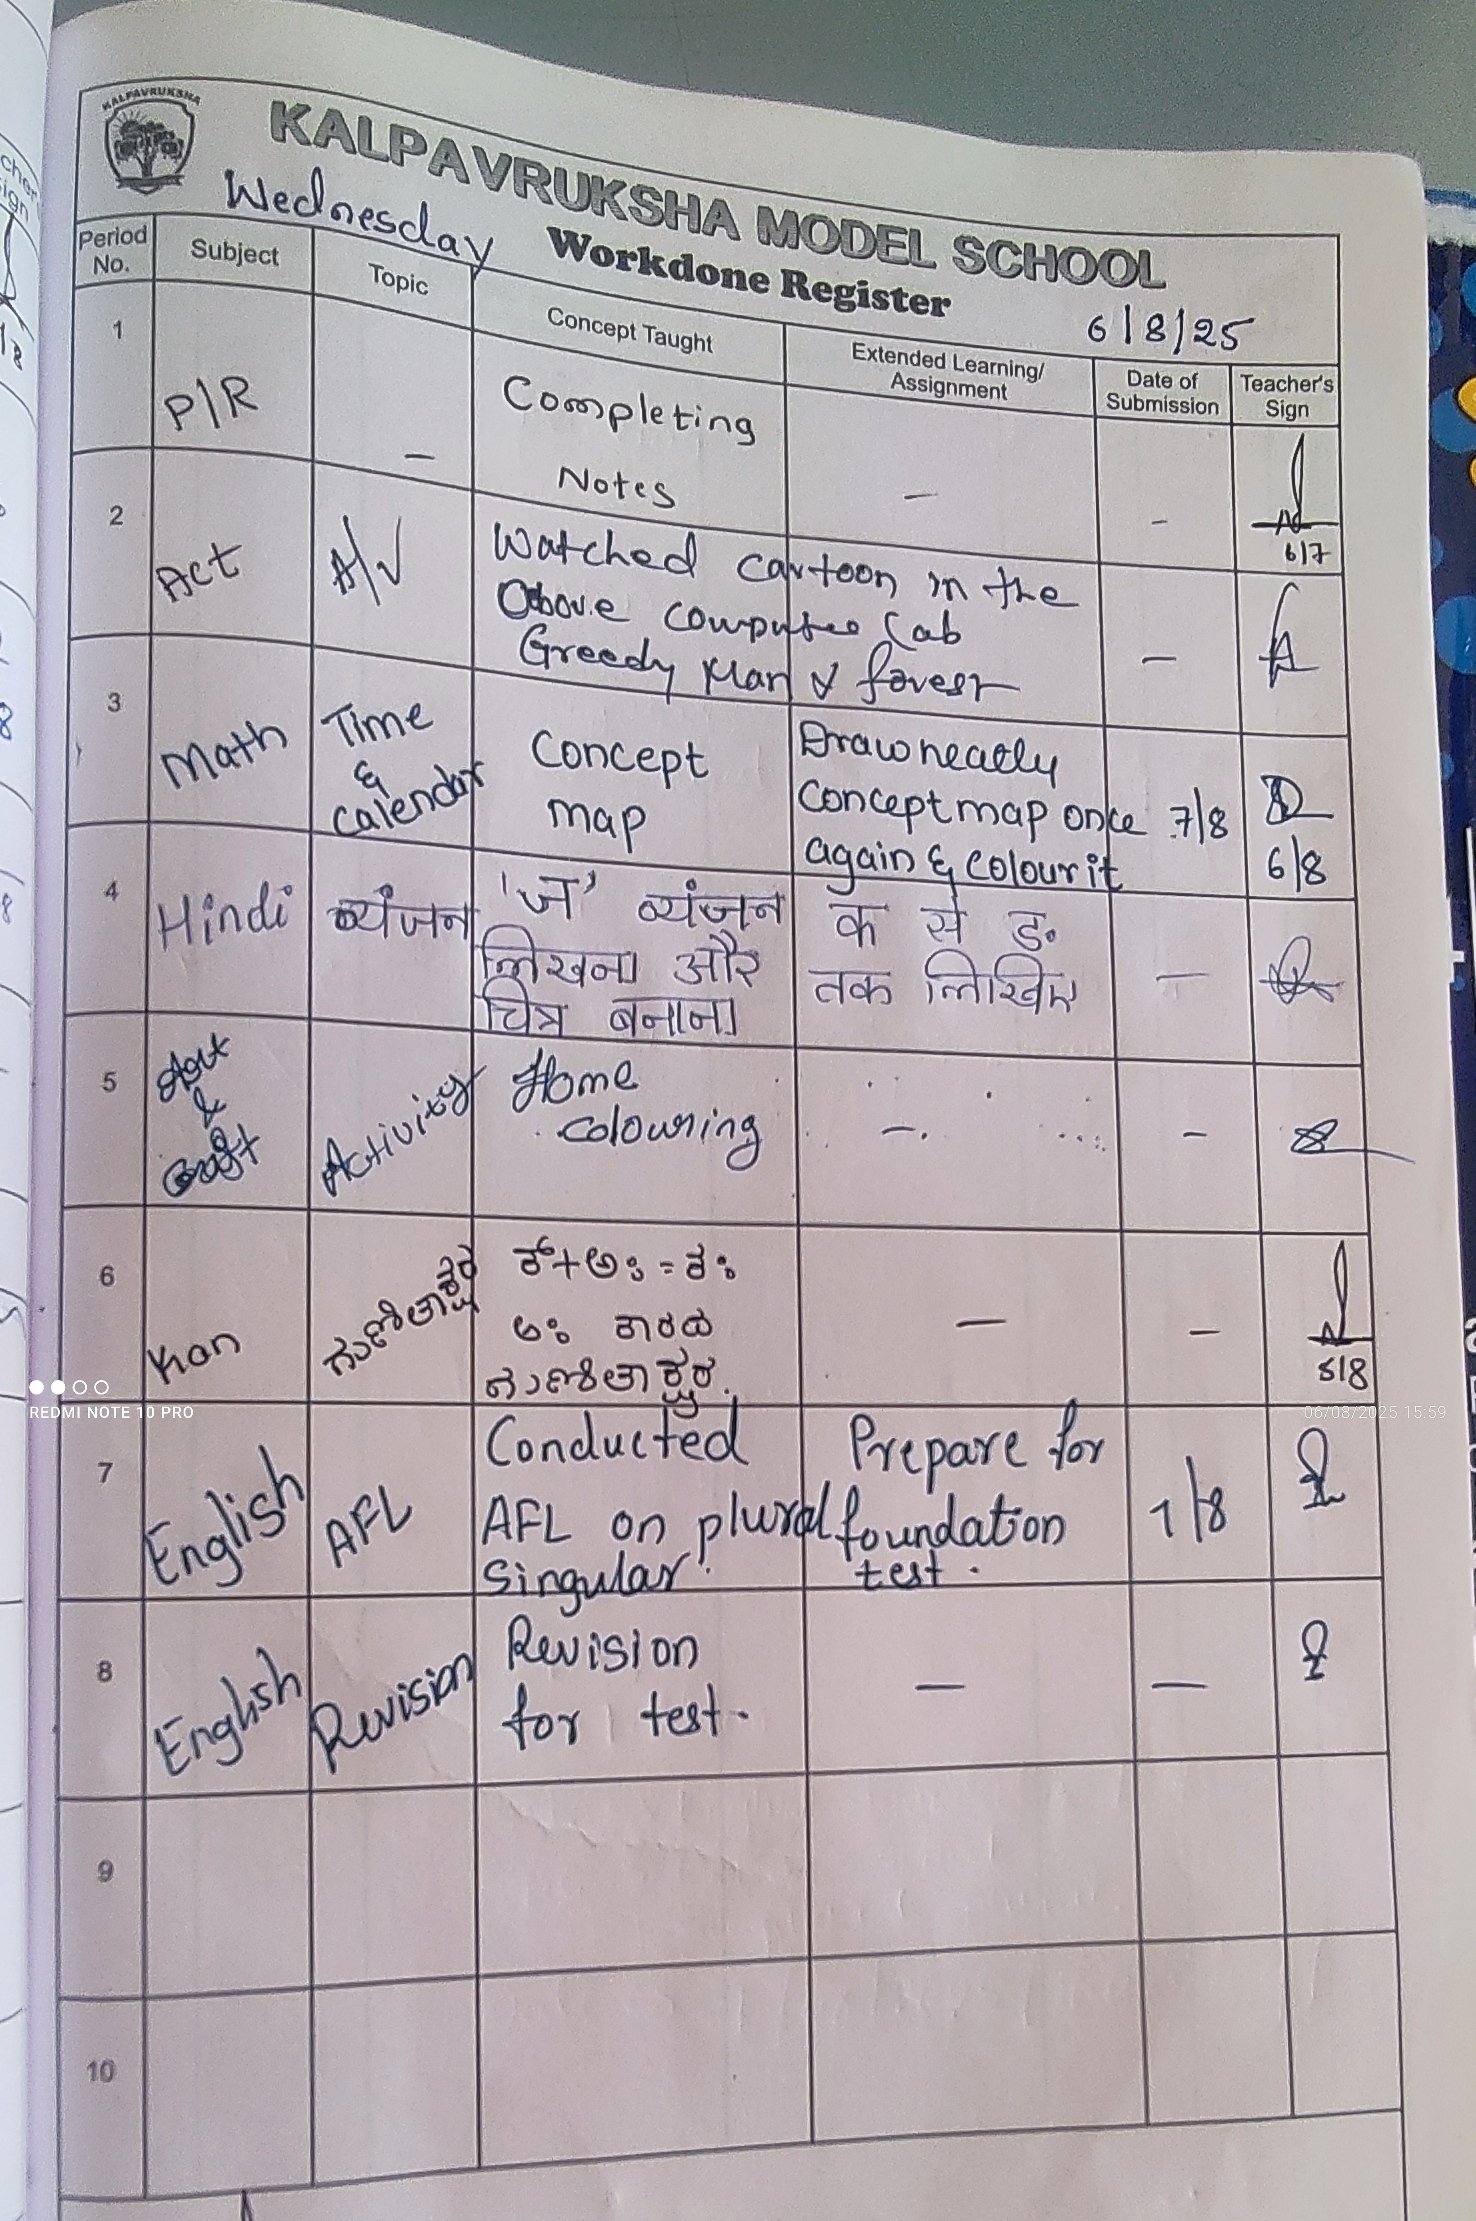 KALPAVRUKSHA
KALPAVRUKSHA MODEL SCHOOL
Wednesday
Workdone Register
6/8/25
Period No.
Subject
Topic
Concept Taught
Extended Learning/ Assignment
Date of Submission
Teacher's Sign
1
P/R
-
Completing
Notes
-
-
6/7
2
Act
A/V
Watched cartoon in the
Above computer Lab
Greedy Man & forest
-
3
Math
Time
&
Calendar
Concept
map
Draw neatly
Concept map once
again & colour it
7/8
6/8
4
Hindi
व्यंजन
'ज' व्यंजन
लिखना और
चित्र बनाना
क से ङ
तक लिखिए
-
5
Art
&
Craft
Activity
Home
colouring
-
-
6
Kan
ಗುಣಿತಾಕ್ಷರ
ಕ್+ಅಃ=ಕಃ
ಅಃ ಕಾರದ
ಗುಣಿತಾಕ್ಷರ.
-
-
5/8
7
English
AFL
Conducted
AFL on plural
Singular.
Prepare for
foundation
test.
7/8
8
English
Revision
Revision
for test.
-
-
9
10
REDMI NOTE 10 PRO
06/08/2025 15:59